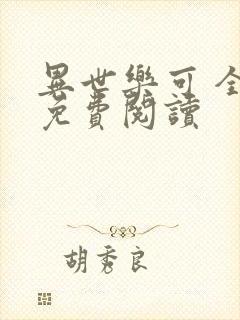 異世樂可全
免費閱讀
胡秀良